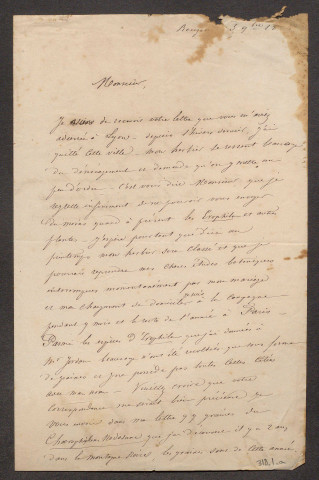 Monsieur,
Je viens de recevoir votre lettre que vous m'avez
adressée à Lyon – depuis l'hiver dernier j'ai
quitté cette ville, mon herbier se ressent beaucoup
du déménagement et demande qu'on y mette un
peu d'ordre – C'est vous dire Monsieur que je
regrette infiniment de ne pouvoir vous envoyer
du moins quant à présent les Erophila et autres
plantes – J'espère pourtant que d'ici au
printemps mon herbier sera classé et que je
pourrai reprendre mes chères études botaniques
interrompues momentanément par mon mariage
et ma changement de domicile puis à la campagne
pendant 9 mois et le reste de l'année à Paris
Parmi les espèces d'Erophila que j'ai données à
Mr Jordan beaucoup n'ont été récoltées que sous forme
de graines et je ne possède pas toutes celles
Veuillez croire que votre
correspondance me serait bien précieuse je
vous envoie dans ma lettre qq graines du
que j'ai trouvé il y a 2 ans
dans la montagne noire la graine sera de cette année